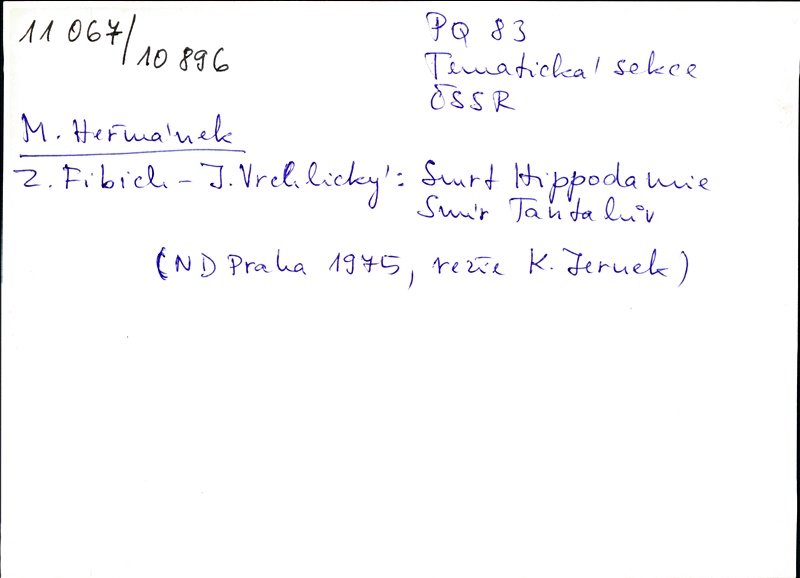 11 067/10 896
PQ 83
Tématická sekce
ČSSR
M. Heřmánek
Z. Fibich - J. Vrchlický: Smrt Hippodamie
Smír Tantalův
(ND Praha 1975, režie K. Jernek)